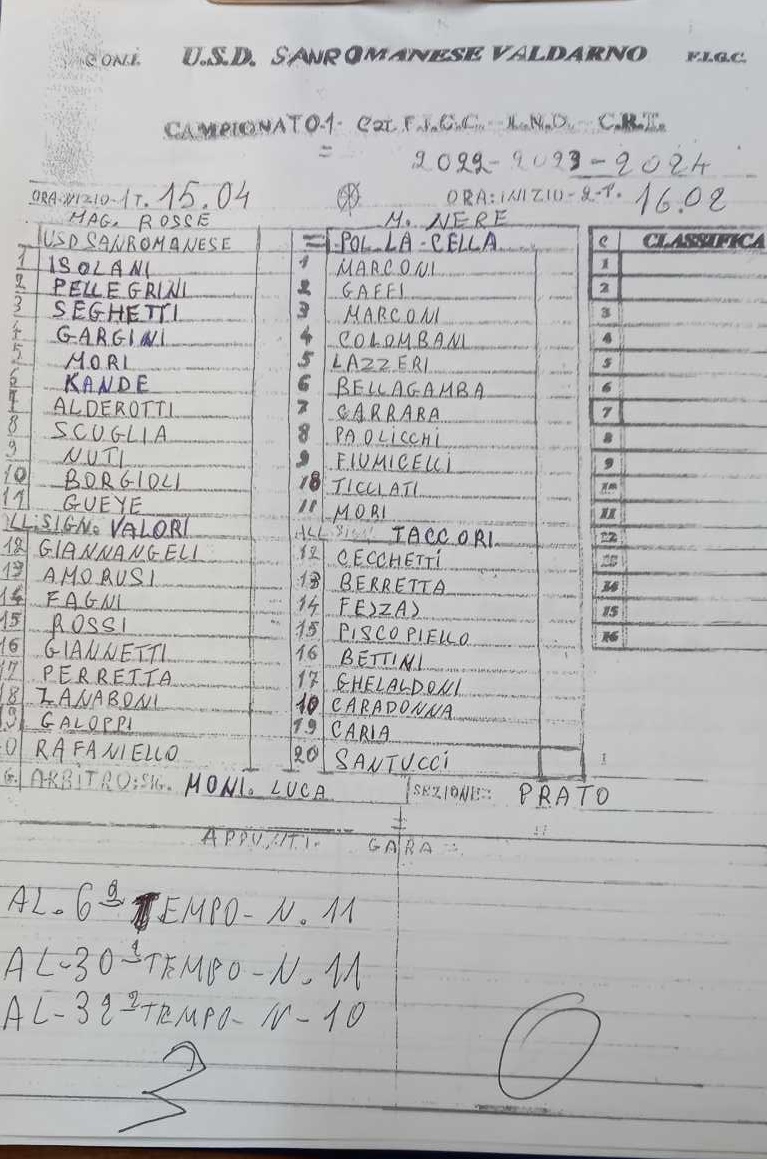 CONI. U.S.D. SANROMANESE VALDARNO F.I.G.C.
CAMPIONATO-1- Cat F.I.G.C. L.N.D. C.R.T.
=
2022-2023-2024
ORA: INIZIO-1T. 15.04 ORA: INIZIO-2-T. 16.02
MAG. ROSSE M. NERE
USD SANROMANESE = POL-LA-CELLA C CLASSIFICA
1 ISOLANI 1 MARCONI 1
2 PELLEGRINI 2 GAFFI 2
3 SEGHETTI 3 MARCONI 3
4 GARGINI 4 COLOMBANI 4
5 MORI 5 LAZZERI 5
6 KANDE 6 BELLAGAMBA 6
7 ALDEROTTI 7 CARRARA 7
8 SCUGLIA 8 PAOLICCHI 8
9 NUTI 9 FIUMICELLI 9
10 BORGIOLI 10 TICCIATI
11 GUEYE 11 MORI 11
ALL.SIGN. VALORI ALL TACCORI
12 GIANNANGELI 12 CECCHETTI
13 AMORUSI 13 BERRETTA 14
14 FAGNI 14 15
15 ROSSI 15 PISCOPIELLO 16
16 GIANNETTI 16 BETTINI
17 PERRETTA 17 GHELALDONI
18 ZANABONI 10 CARADONNA
9 GALOPPI 19 CARIA
0 RAFANIELLO 20 SANTUCCI
G. ARBITRO:SIG. MONI. LUCA SEZIONE: PRATO
APPUNTI. GARA
AL. 6 2 TEMPO-N. 11
AL-30 1 TEMPO-N. 11
AL-32 2 TEMPO-N-10
3 0